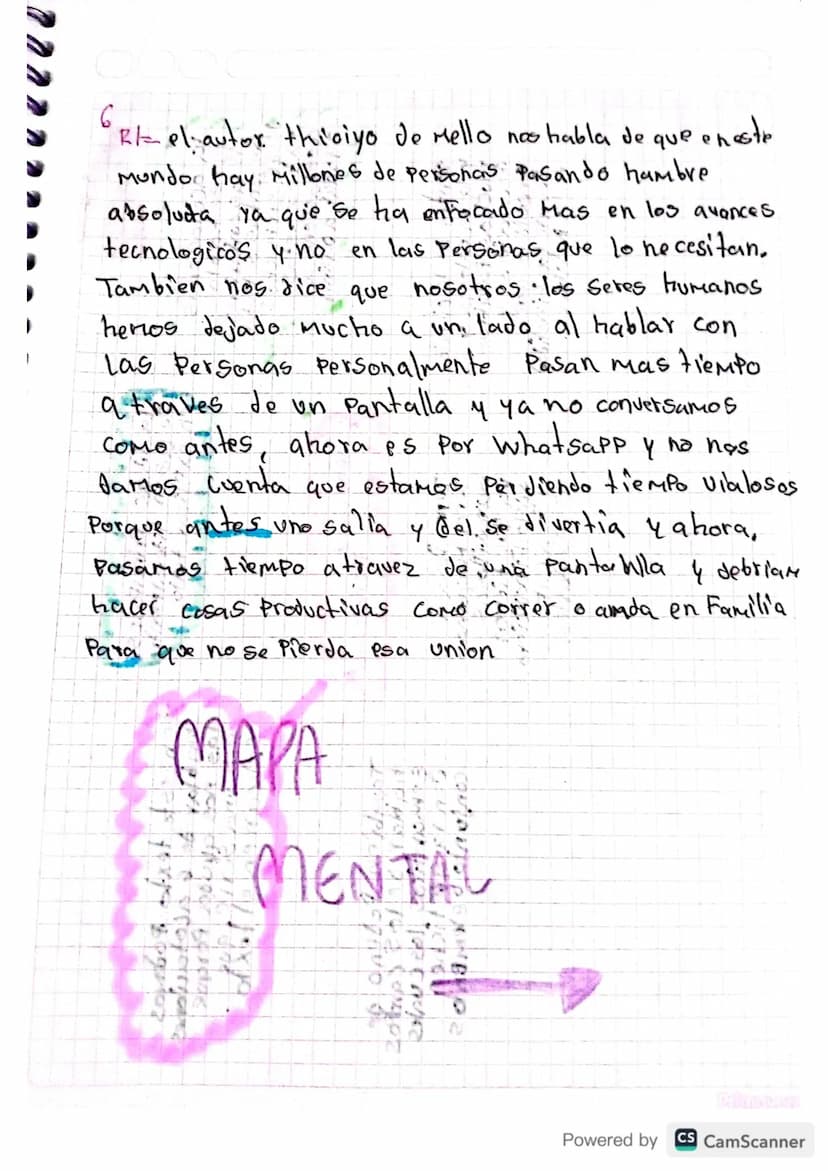 6
R/= el autor thioiyo de Mello nos habla de que en este
mundo hay Millones de Personas Pasando hambre
absoluta ya que se ha enfocado Mas en los avances
tecnologicos y no en las Personas que lo necesitan.
Tambien nos dice que nosotros los Seres humanos
hemos dejado mucho a un lado al hablar con
Las Personas Personalmente Pasan mas tiempo
a traves de un Pantalla y ya no conversamos
como antes, ahora es Por Whatsapp y no nos
damos Cuenta que estamos Perdiendo tiempo
Porque antes uno salia y se divertia y ahora,
Pasamos tiempo atravez de una y debrian
hacer cosas Productivas como correr o en Familia
Para que no se Pierda esa union
MAPA
MENTAL
Powered by CS CamScanner